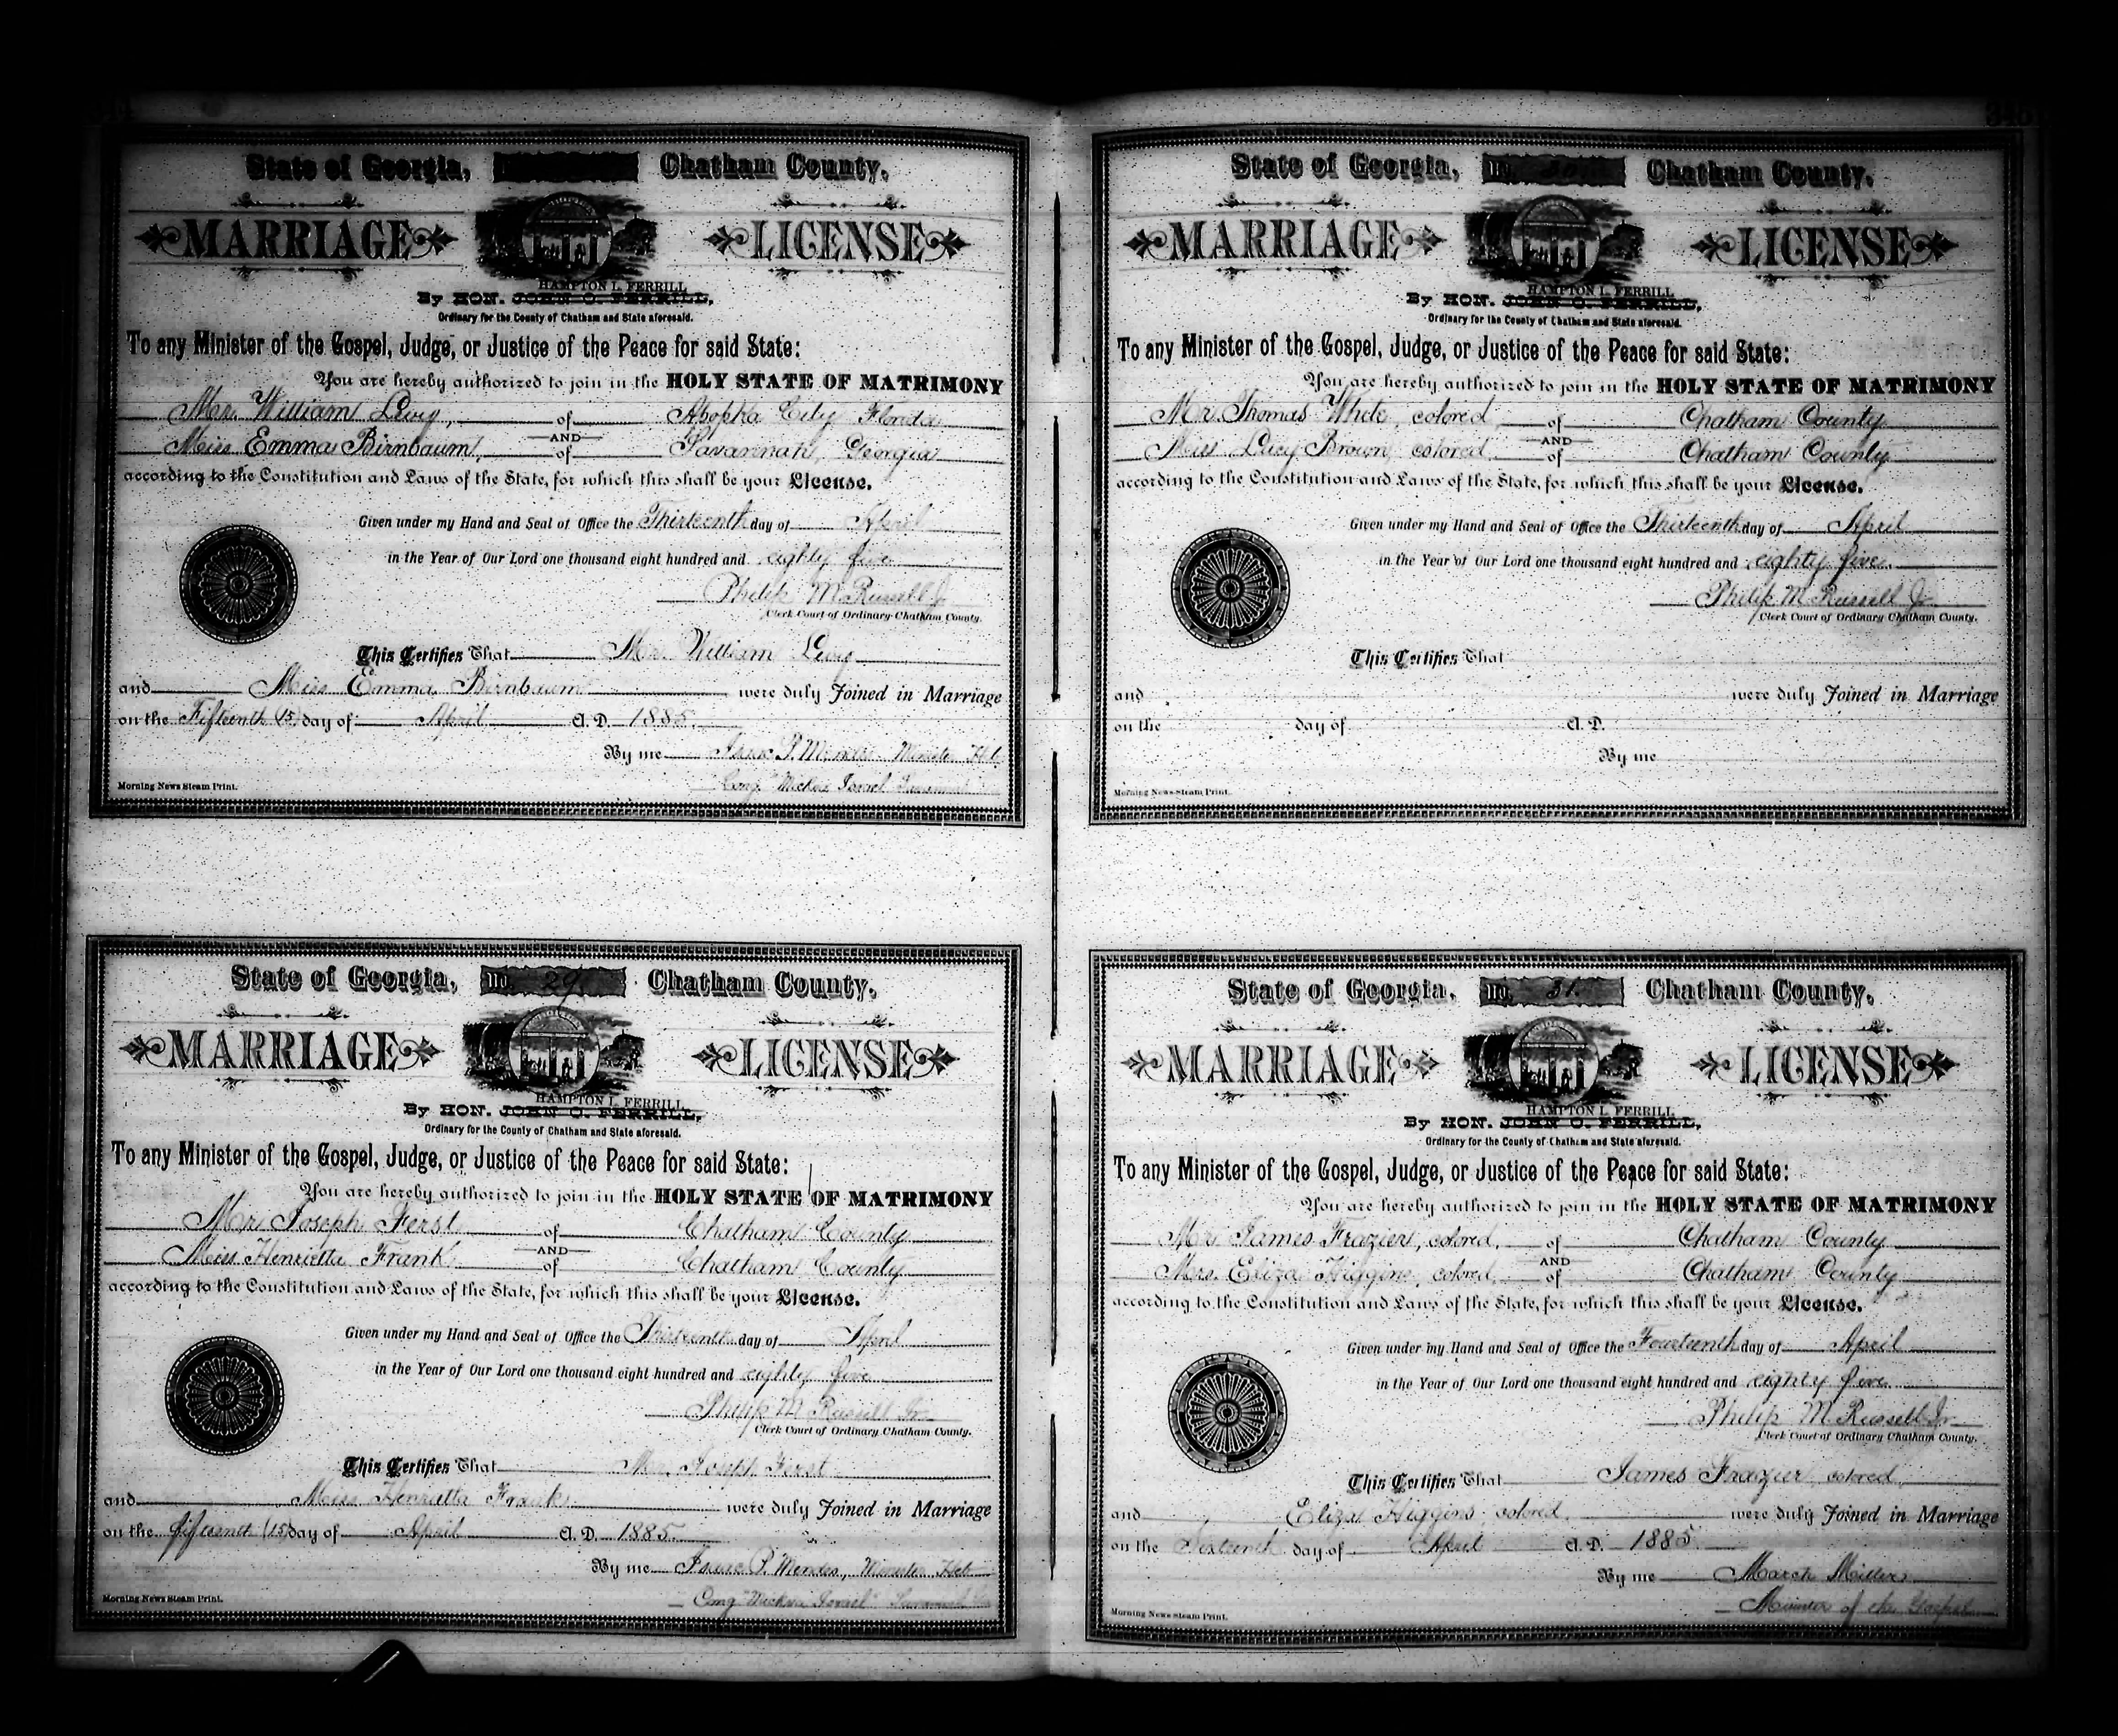 State of Georgia, Chatham County.
MARRIAGE LICENSE
HAMPTON L. FERRILL
By HON. JOHN O. FERRILL,
Ordinary for the County of Chatham and State aforesaid.
To any Minister of the Gospel, Judge, or Justice of the Peace for said State:
You are hereby authorized to join in the HOLY STATE OF MATRIMONY
Mr. William Levy, of Apopka City Florida
AND
Miss Emma Birnbaum, of Savannah, Georgia
according to the Constitution and Laws of the State, for which this shall be your License.
Given under my Hand and Seal of Office the Thirteenth day of April
in the Year of Our Lord one thousand eight hundred and eighty five
Philip M. Russell Jr
Clerk Court of Ordinary Chatham County.
This Certifies That Mr. William Levy
and Miss Emma Birnbaum were duly Joined in Marriage
on the Fifteenth (15) day of April A. D. 1885.
By me Isaac P. Mendes Minister Heb
Cong "Mickva Israel" Savannah
Morning News Steam Print.
State of Georgia, No. 29. Chatham County.
MARRIAGE LICENSE
HAMPTON L. FERRILL
By HON. JOHN O. FERRILL,
Ordinary for the County of Chatham and State aforesaid.
To any Minister of the Gospel, Judge, or Justice of the Peace for said State:
You are hereby authorized to join in the HOLY STATE OF MATRIMONY
Mr. Joseph Ferst of Chatham County
AND
Miss Henrietta Frank of Chatham County
according to the Constitution and Laws of the State, for which this shall be your License.
Given under my Hand and Seal of Office the Thirteenth day of April
in the Year of Our Lord one thousand eight hundred and eighty five
Philip M Russell Jr.
Clerk Court of Ordinary Chatham County.
This Certifies That Mr. Joseph Ferst
and Miss Henrietta Frank were duly Joined in Marriage
on the fifteenth (15) day of April A. D. 1885.
By me Isaac P. Mendes, Minister Heb
Cong "Mickva Israel" Savannah
Morning News Steam Print.
State of Georgia, No. 30. Chatham County.
MARRIAGE LICENSE
HAMPTON L. FERRILL
By HON. JOHN O. FERRILL,
Ordinary for the County of Chatham and State aforesaid.
To any Minister of the Gospel, Judge, or Justice of the Peace for said State:
You are hereby authorized to join in the HOLY STATE OF MATRIMONY
Mr. Thomas White, colored of Chatham County
AND
Miss Lucy Brown, colored of Chatham County
according to the Constitution and Laws of the State, for which this shall be your License.
Given under my Hand and Seal of Office the Thirteenth day of April
in the Year of Our Lord one thousand eight hundred and eighty five.
Philip M Russell Jr
Clerk Court of Ordinary Chatham County.
This Certifies That
and were duly Joined in Marriage
on the day of A. D.
By me
Morning News Steam Print.
State of Georgia, No. 31. Chatham County.
MARRIAGE LICENSE
HAMPTON L. FERRILL
By HON. JOHN O. FERRILL,
Ordinary for the County of Chatham and State aforesaid.
To any Minister of the Gospel, Judge, or Justice of the Peace for said State:
You are hereby authorized to join in the HOLY STATE OF MATRIMONY
Mr. James Frazier, colored, of Chatham County
AND
Mrs. Eliza Higgins, colored, of Chatham County
according to the Constitution and Laws of the State, for which this shall be your License.
Given under my Hand and Seal of Office the Fourteenth day of April
in the Year of Our Lord one thousand eight hundred and eighty five
Philip M. Russell Jr
Clerk Court of Ordinary Chatham County.
This Certifies That James Frazier, colored
and Eliza Higgins colored were duly Joined in Marriage
on the day of April A. D. 1885
By me March Miller
Minister of the Gospel
Morning News Steam Print.